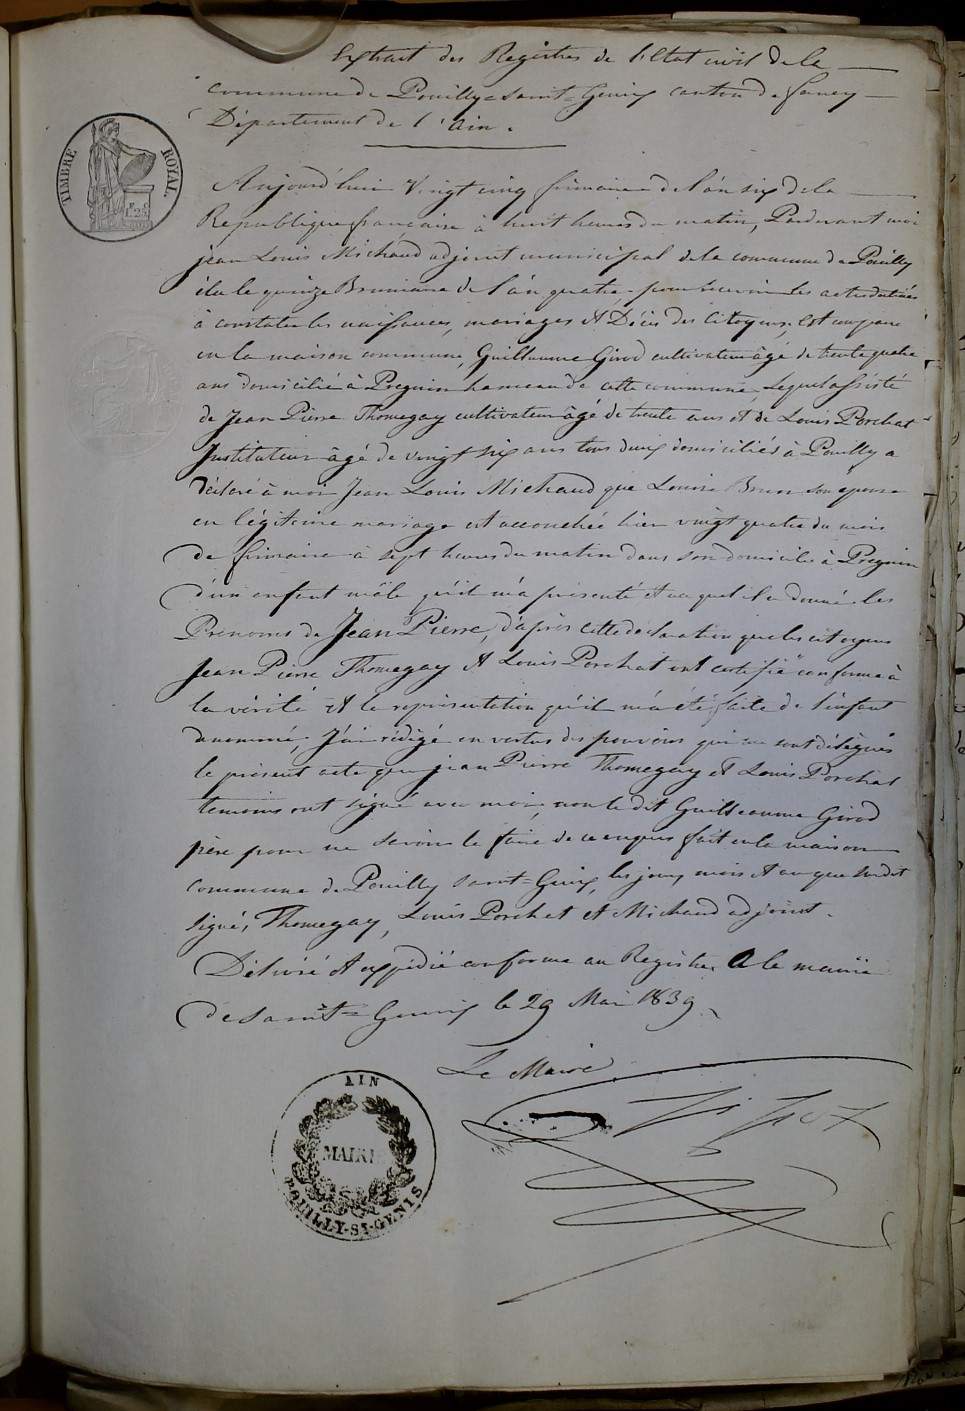 Extrait des Registres de l'Etat civil de la
commune de Pouilly=Saint=Genix canton de
Département de l'Ain.
TIMBRE ROYAL
Aujourd'hui Vingt cinq frimaire de l'an six de la
Republique française à huit heures du matin, Pardevant moi
jean Louis Michaud adjoint municipal de la commune de Pouilly
élu le quinze Brumaire de l'an quatre pour recevoir les actes destinés
à constater les naissances, mariages et Décès des Citoyens, Est comparu
en la maison commune, Guillaume Girod cultivateur âgé de trente quatre
ans domicilié à Pregnin hameau de cette commune, Lequel assisté
de Jean Pierre Thomegay cultivateur âgé de trente ans et de Louis Porchat
Instituteur âgé de vingt six ans tous deux domiciliés à Pouilly a
déclaré à moi Jean Louis Michaud que Louise Brun son épouse
en légitime mariage est accouchée hier vingt quatre du mois
de frimaire à sept heures du matin dans son domicile à Pregnin
d'un enfant mâle qu'il m'a présenté et auquel il a donné les
Prenoms de Jean Pierre, d'après cette déclaration que les citoyens
Jean Pierre Thomegay et Louis Porchat ont certifié conforme à
la vérité et la représentation qu'il m'a été faite de l'enfant
denommé, J'ai rédigé en vertus des pouvoirs qui me sont délégués
le présent acte que jean Pierre Thomegay et Louis Porchat
temoins ont signé avec moi, non le dit Guilleaume Girod
père pour ne savoir le faire de ce enquis fait en la maison
commune de Pouilly Saint=Genix, les jour, mois et an que susdit
signé, Thomegay, Louis Porchat et Michaud adjoint.
Délivré et expédié conforme au Registre A la mairie
de Saint=Genix le 29 Mai 1839.
Le Maire
AIN
MAIRIE
POUILLY-ST-GENIS